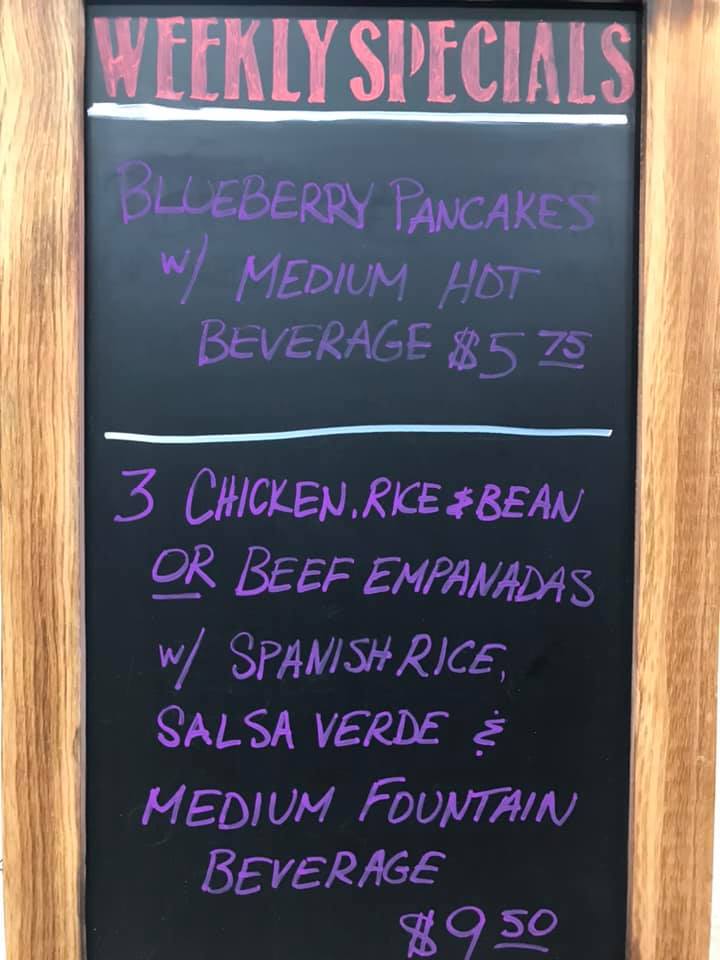 WEEKLY SPECIALS
BLUEBERRY PANCAKES
w/ MEDIUM HOT
BEVERAGE $5 75
3 CHICKEN, RICE & BEAN
OR BEEF EMPANADAS
w/ SPANISH RICE,
SALSA VERDE &
MEDIUM FOUNTAIN
BEVERAGE
$9 50